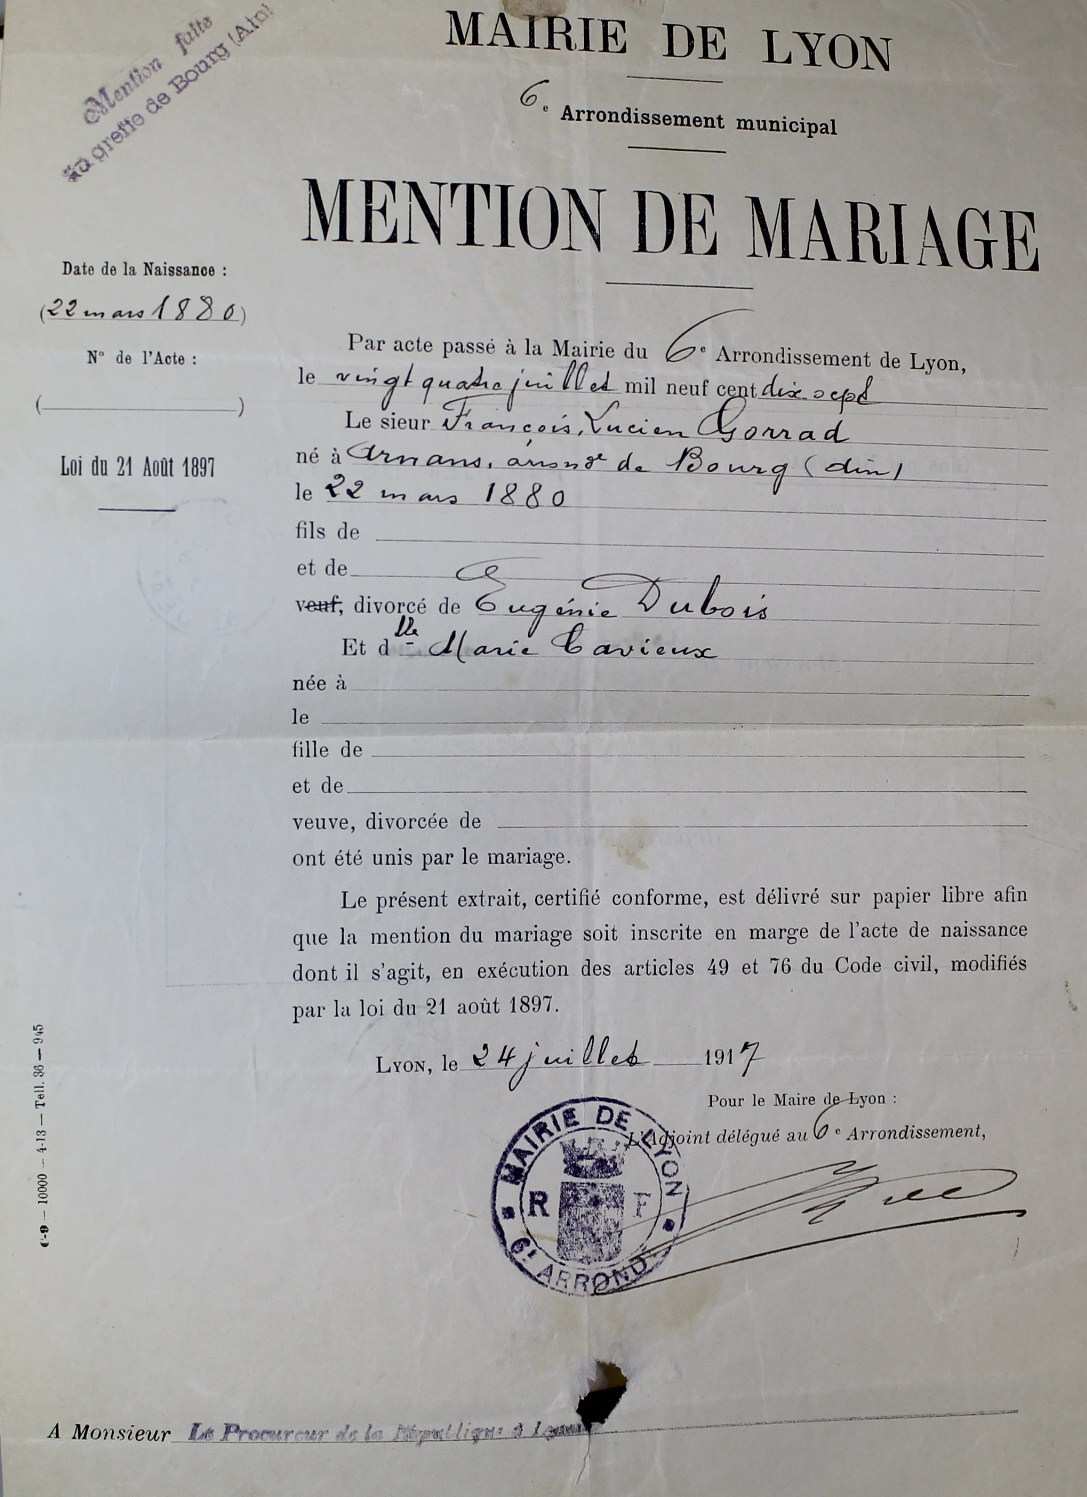 Mention faite
au greffe de Bourg (Ain)
MAIRIE DE LYON
6e Arrondissement municipal
MENTION DE MARIAGE
Date de la Naissance :
(22 mars 1880)
N° de l'Acte :
( )
Loi du 21 Août 1897
Par acte passé à la Mairie du 6e Arrondissement de Lyon,
le vingt quatre juillet mil neuf cent dix sept
Le sieur François, Lucien Gorrad
né à Arnans, arrondt de Bourg (Ain)
le 22 mars 1880
fils de
et de
veuf, divorcé de Eugénie Dubois
Et dlle Marie Cavieux
née à
le
fille de
et de
veuve, divorcée de
ont été unis par le mariage.
Le présent extrait, certifié conforme, est délivré sur papier libre afin
que la mention du mariage soit inscrite en marge de l'acte de naissance
dont il s'agit, en exécution des articles 49 et 76 du Code civil, modifiés
par la loi du 21 août 1897.
LYON, le 24 juillet 1917
Pour le Maire de Lyon :
L'Adjoint délégué au 6e Arrondissement,
MAIRIE DE LYON
R F
6e ARROND.
C-9 — 10000 — 4-13 — Tell. 36 — 945
A Monsieur Le Procureur de la République à